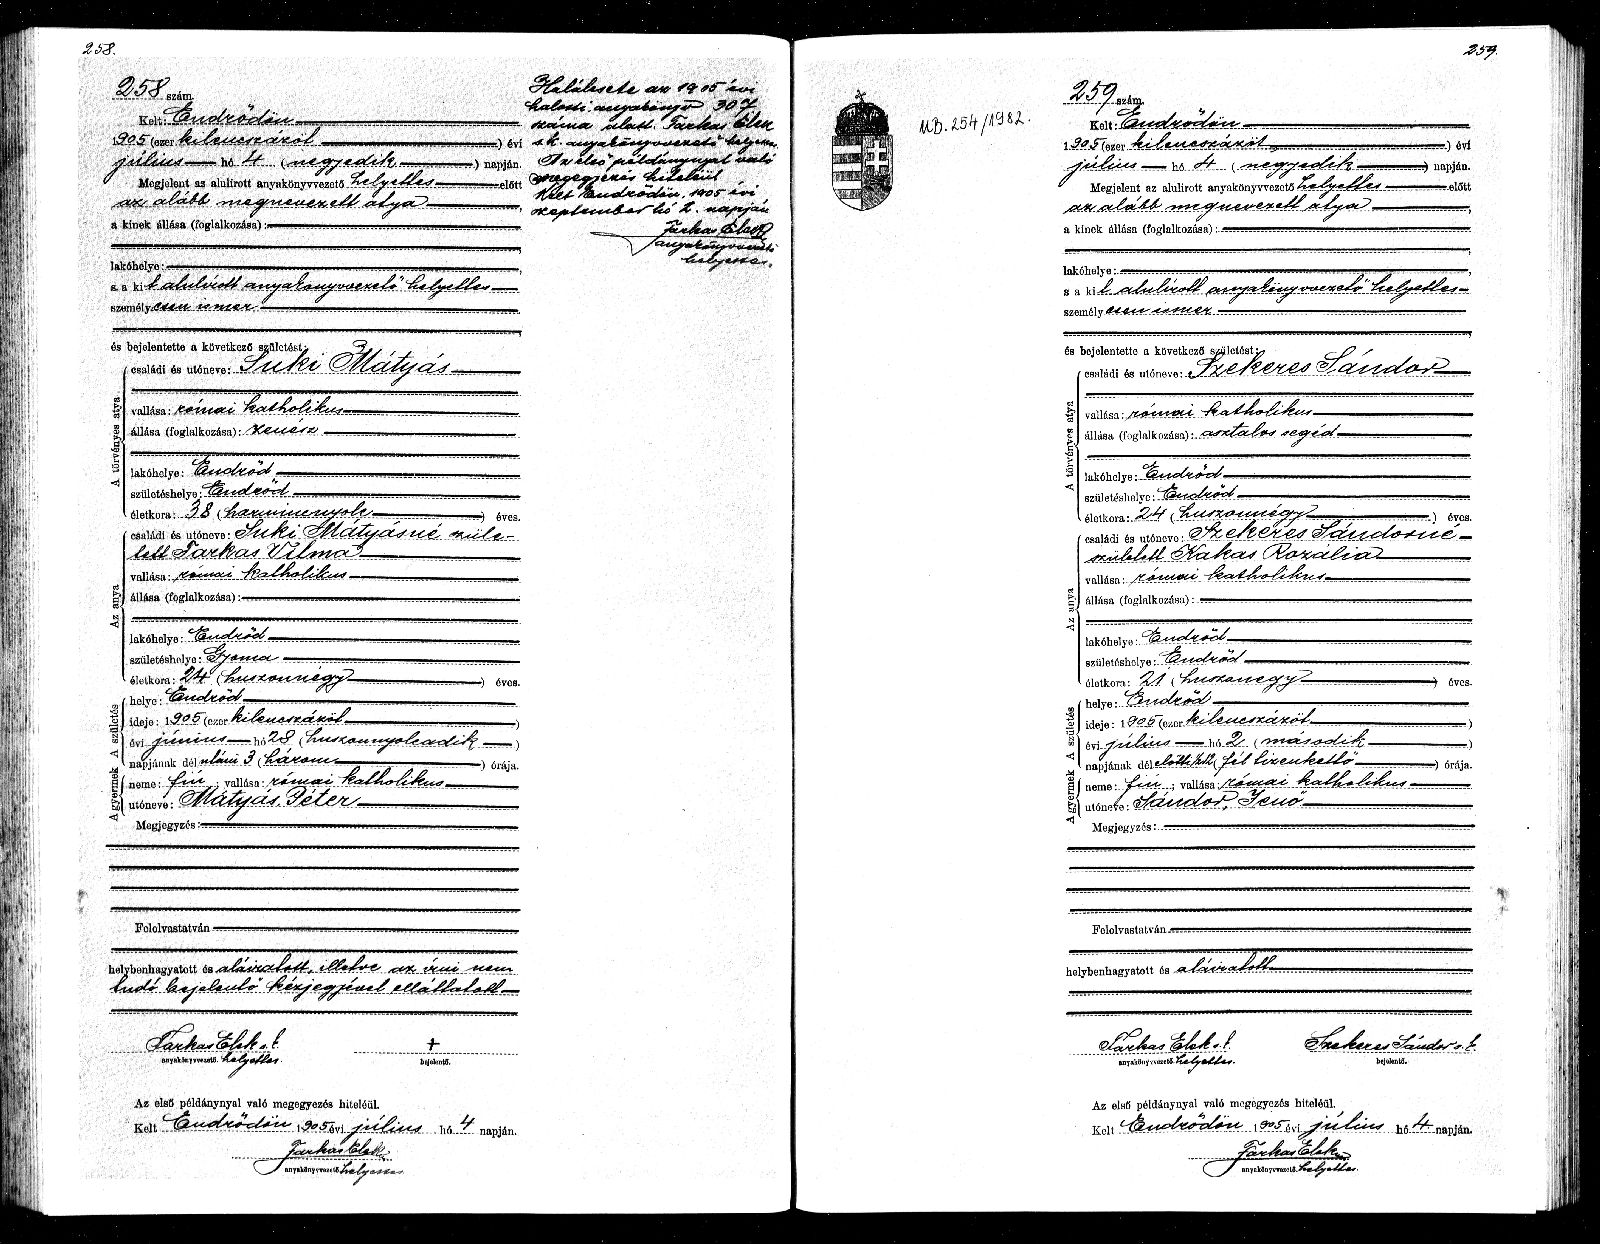 258.
258 szám.
Kelt: Endrődön
1905 (ezer kilencszázöt) évi
július hó 4 (negyedik) napján.
Megjelent az alulirott anyakönyvvezető helyettes előtt
az alább megnevezett atya,
a kinek állása (foglalkozása):
lakóhelye:
s a kit alulírott anyakönyvvezető helyettes
személyesen ismer
és bejelentette a következő születést:
A törvényes atya
családi és utóneve: Suki Mátyás
vallása: római katholikus
állása (foglalkozása): zenész
lakóhelye: Endrőd
születéshelye: Endrőd
életkora: 38 (harmincnyolc) éves.
Az anya
családi és utóneve: Suki Mátyásné szüle-
tett Farkas Vilma
vallása: római katholikus
állása (foglalkozása):
lakóhelye: Endrőd
születéshelye: Gyoma
életkora: 24 (huszonnégy) éves.
A születés
helye: Endrőd
ideje: 1905 (ezer kilencszázöt)
évi június hó 28 (huszonnyolcadik)
napjának dél utáni 3 (három) órája.
A gyermek
neme: fiú; vallása: római katholikus
utóneve: Mátyás, Péter
Megjegyzés:
Felolvastatván
helybenhagyatott és aláiratott, illetve az írni nem
tudó bejelentő kézjegyével elláttatott
Farkas Elek s. k. +
anyakönyvvezető helyettes. bejelentő.
Az első példánynyal való megegyezés hiteléül.
Kelt Endrődön 1905 évi július hó 4 napján.
Farkas Elek
anyakönyvvezető helyettes
Halálesete az 1905 évi
halotti anyakönyv 307
száma alatt. Farkas Elek
s.k. anyakönyvvezető helyettes.
Az első példánynyal való
megegyezés hiteléül
Kelt Endrődön, 1905 évi
szeptember hó 2. napján
Farkas Elek
anyakönyvvezető
helyettes.
MB. 254/1982.
259
259 szám.
Kelt: Endrődön
1905 (ezer kilencszázöt) évi
július hó 4 (negyedik) napján.
Megjelent az alulirott anyakönyvvezető helyettes előtt
az alább megnevezett atya,
a kinek állása (foglalkozása):
lakóhelye:
s a kit alulírott anyakönyvvezető helyettes
személyesen ismer
és bejelentette a következő születést:
A törvényes atya
családi és utóneve: Szekeres Sándor
vallása: római katholikus
állása (foglalkozása): asztalos segéd
lakóhelye: Endrőd
születéshelye: Endrőd
életkora: 24 (huszonnégy) éves.
Az anya
családi és utóneve: Szekeres Sándorné
született Kakas Rozália
vallása: római katholikus
állása (foglalkozása):
lakóhelye: Endrőd
születéshelye: Endrőd
életkora: 21 (huszonegy) éves.
A születés
helye: Endrőd
ideje: 1905 (ezer kilencszázöt)
évi július hó 2 (második)
napjának dél előtti (fél tizenkettő) órája.
A gyermek
neme: fiú; vallása: római katholikus
utóneve: Sándor, Jenő
Megjegyzés:
Felolvastatván
helybenhagyatott és aláiratott
Farkas Elek s. k. Szekeres Sándor s. k.
anyakönyvvezető helyettes. bejelentő.
Az első példánynyal való megegyezés hiteléül.
Kelt Endrődön 1905 évi július hó 4 napján.
Farkas Elek
anyakönyvvezető helyettes.